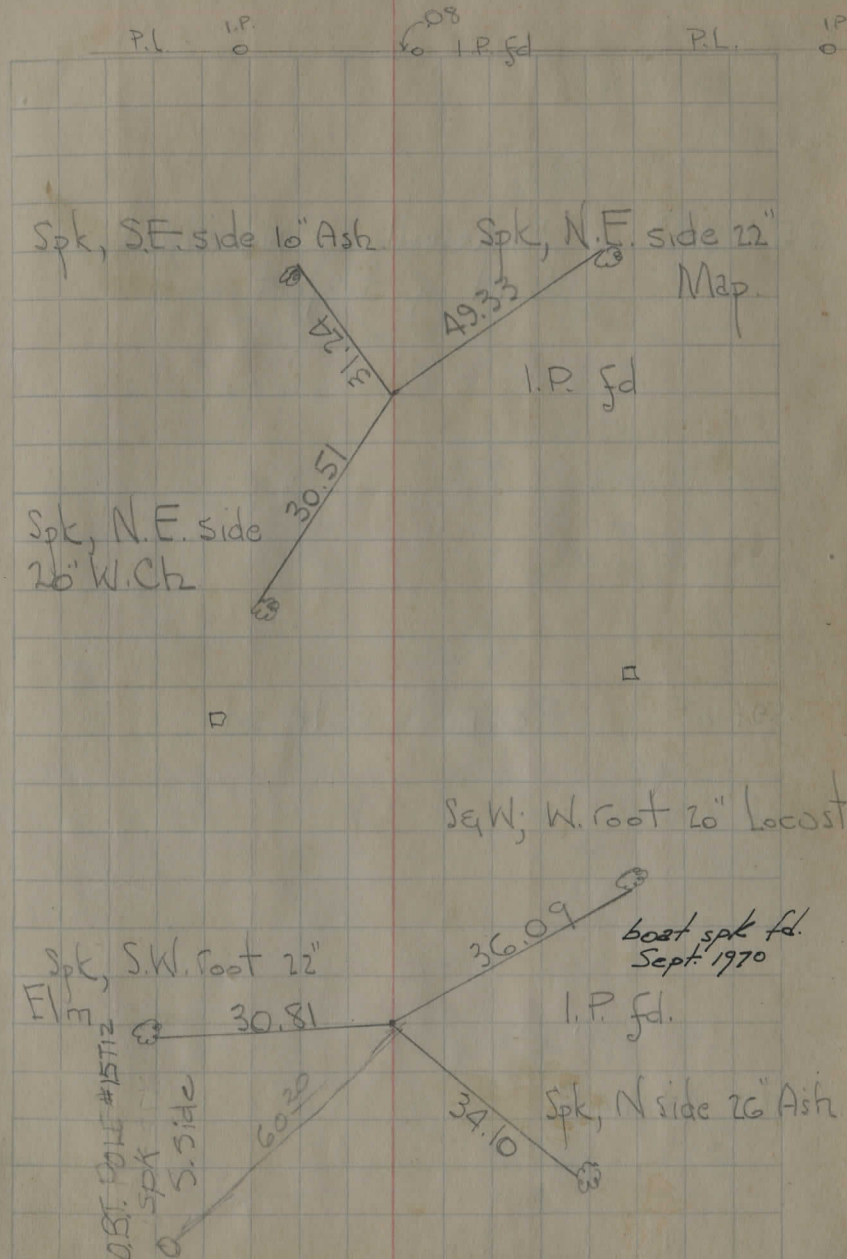 .08
P.L I.P. I.P. fd P.L. I.P
Spk, S.E. side 10" Ash
Spk, N.E. side 22"
Map.
31.24
49.33
I.P. fd
30.51
Spk, N.E. side
26" W.Ch
S&W; W. root 20" Locust
36.09
boat spk fd.
Sept. 1970
Spk, S.W. root 22"
Elm
30.81
I.P. fd.
60.20
34.10
Spk, N side 26" Ash
POLE #15T12
spk
S. side